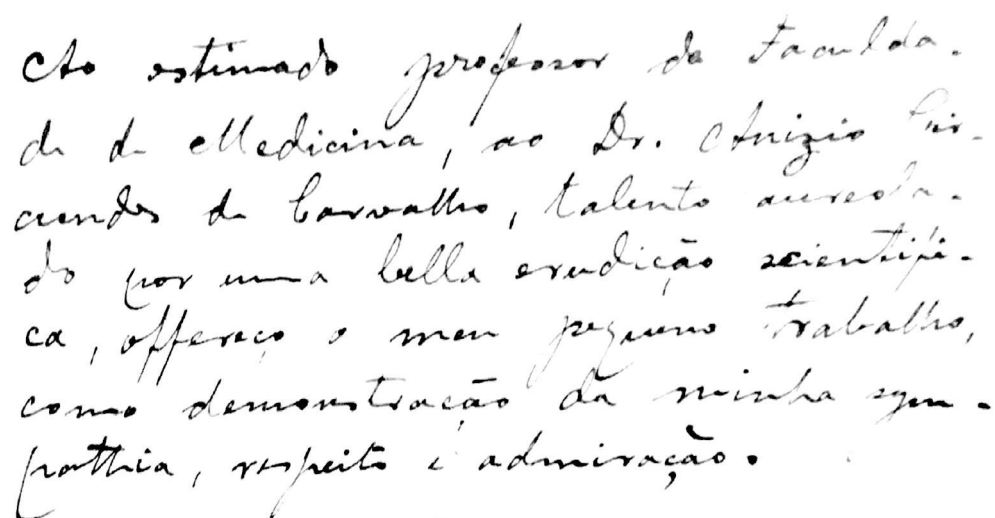 Ao estimado professor da Faculda-
de de Medicina, ao Dr. Anizio Cir-
cundes de Carvalho, talento aureola-
do por uma bella erudição scientifi-
ca, offereço o meu pequeno trabalho,
como demonstração da minha sym-
pathia, respeito e admiração.